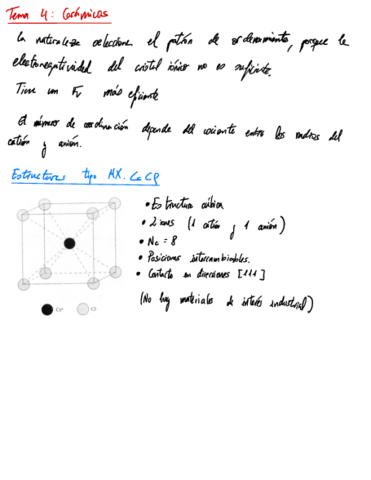 Tema 4: Cerámicas
La naturaleza selecciona el patrón de ordenamiento, porque la
electronegatividad del cristal iónico no es suficiente.
Tiene un Fv más eficiente
El número de coordinación depende del cociente entre los radios del
catión y anión.
Estructuras tipo MX. CsCl
• Estructura cúbica
• 2 iones (1 catión y 1 anión)
• Nc = 8
• Posiciones intercambiables.
• Contacto en direcciones [111]
(No hay materiales de interés industrial)
Cs+ Cl-